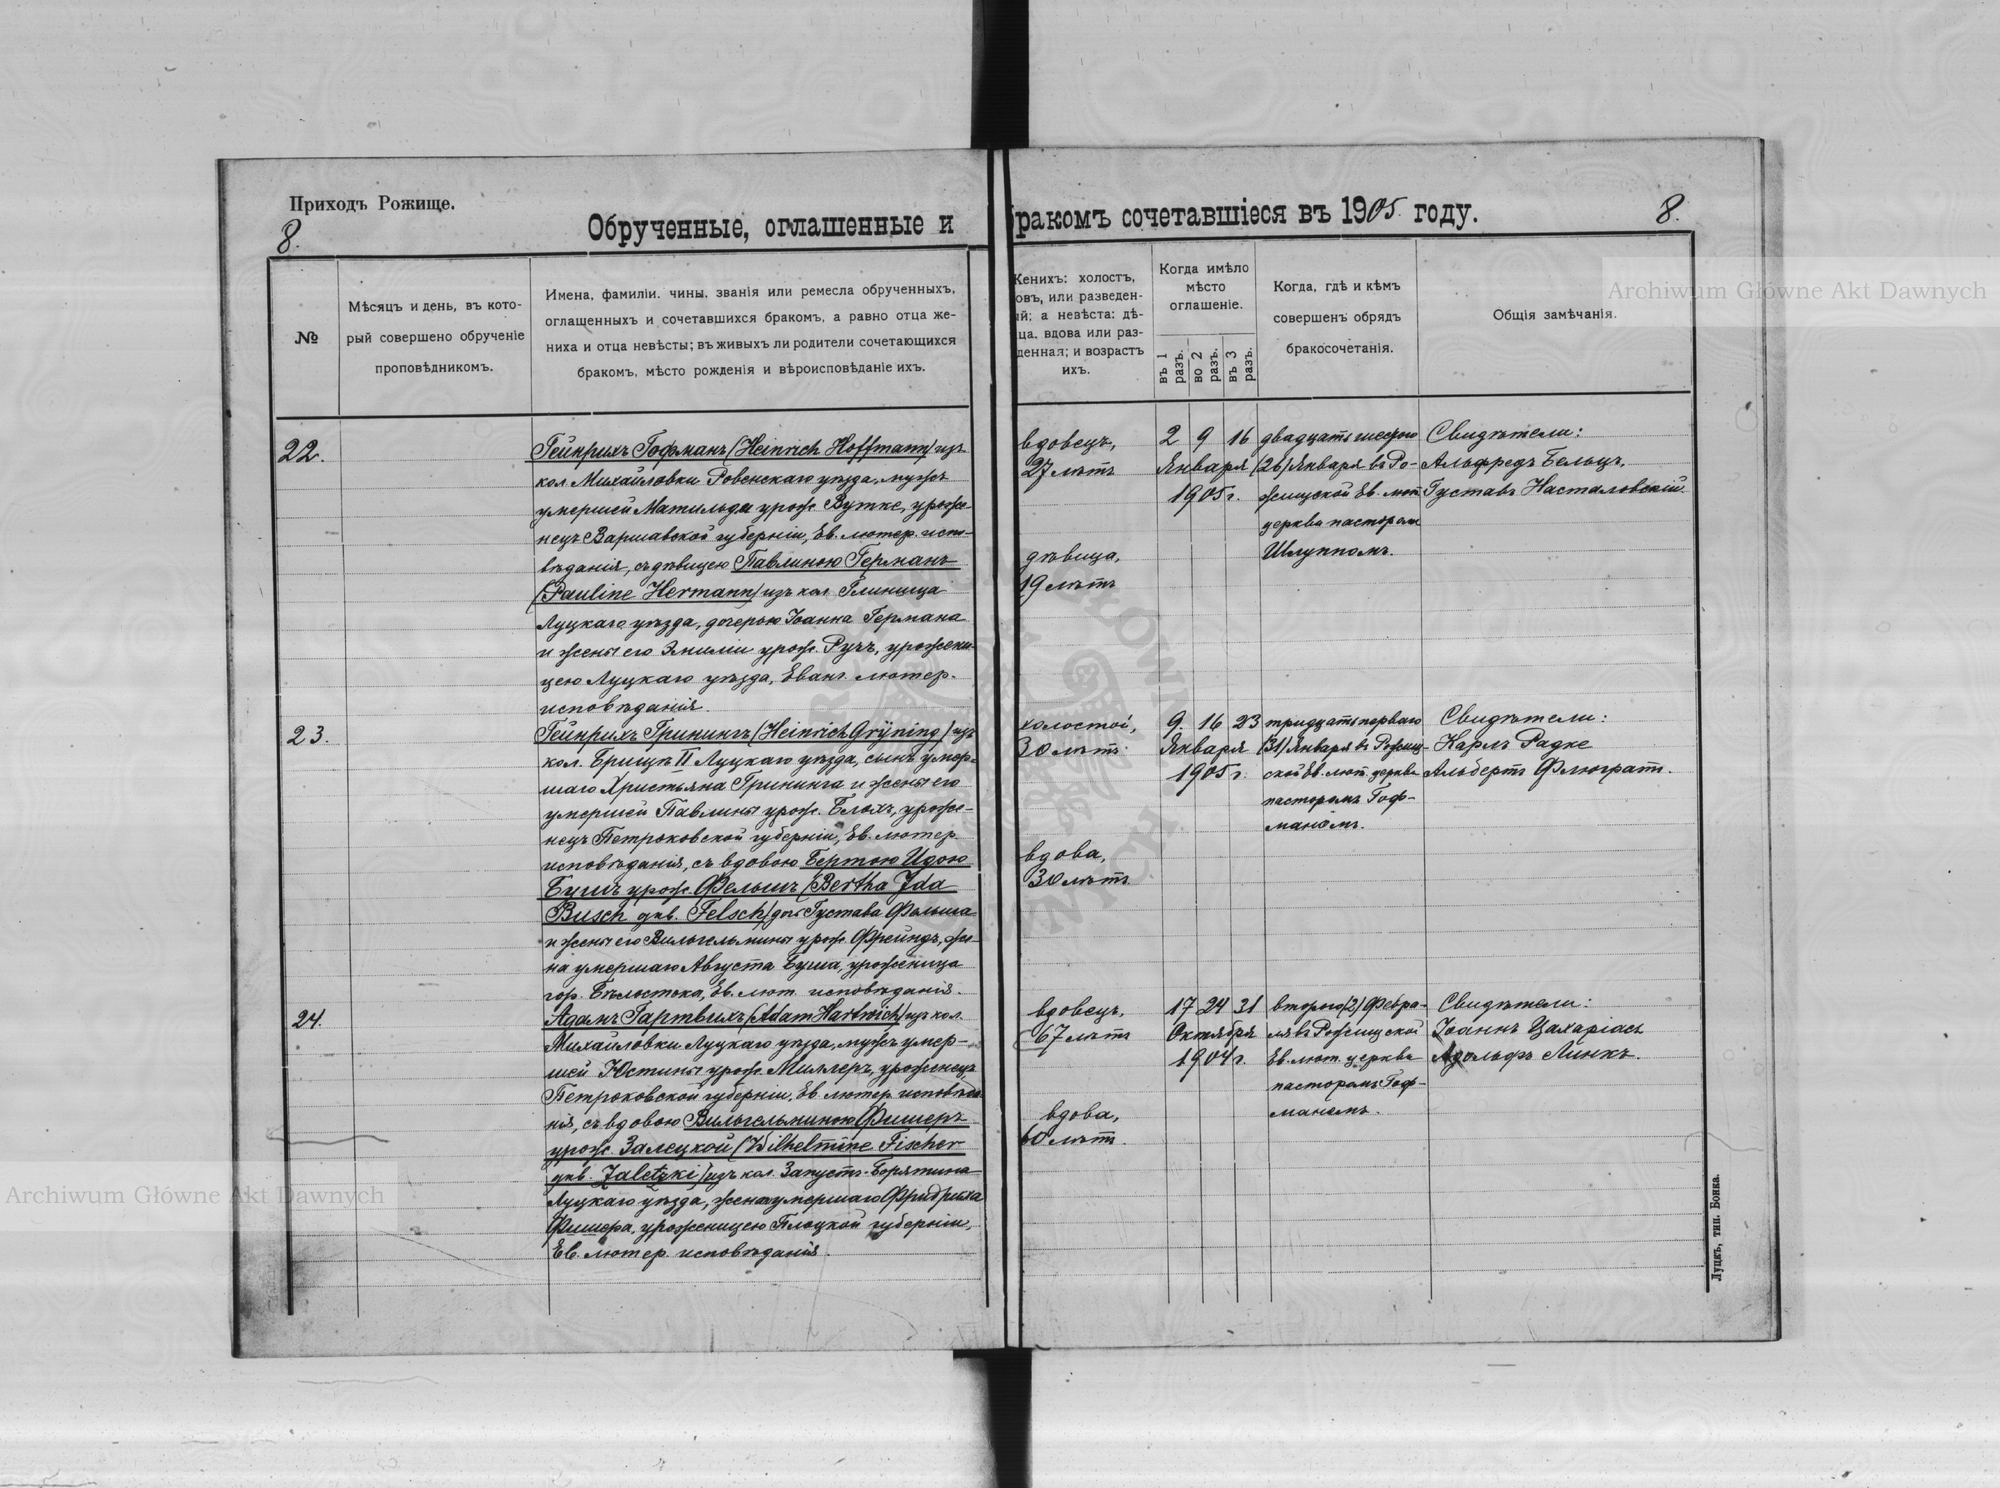 Приходъ Рожище.
8.
Обрученные, оглашенные и
бракомъ сочетавшіеся въ 1905. году.
8.
№
Мѣсяцъ и день, въ кото-
рый совершено обрученіе
проповѣдникомъ.
Имена, фамиліи. чины, званія или ремесла обрученныхъ,
оглашенныхъ и сочетавшихся бракомъ, а равно отца же-
ниха и отца невѣсты; въ живыхъ ли родители сочетающихся
бракомъ, мѣсто рожденія и вѣроисповѣданіе ихъ.
Женихъ: холостъ,
овъ, или разведен-
ый; а невѣста: дѣ-
ца, вдова или раз-
денная; и возрастъ
ихъ.
Когда имѣло
мѣсто
оглашеніе.
въ 1 разъ.
во 2 разъ.
въ 3 разъ.
Когда, гдѣ и кѣмъ
совершенъ обрядъ
бракосочетанія.
Общія замѣчанія.
22.
Гейнрихъ Гофманъ (Heinrich Hoffmann) изъ
кол. Михайловки Ровенскаго уѣзда, мужъ
умершей Матильды урож. Вутке, уроже-
нецъ Варшавской губерніи, Ев. лютер. испо-
вѣданія, съ дѣвицею Павлиною Германъ
(Pauline Hermann) изъ кол. Глинища
Луцкаго уѣзда, дочерью Іоанна Германа
и жены его Эмиліи урож. Рухъ, урожени-
цею Луцкаго уѣзда, Еванг. лютер.
исповѣданія.
вдовецъ,
27 лѣтъ
дѣвица,
19 лѣтъ
2 9 16
Января
1905 г.
двадцать шестого
(26) Января въ Ро-
жищской Ев. лют.
церкви пасторомъ
Шлуппомъ.
Свидѣтели:
Альфредъ Бельцъ,
Густавъ Насталовскій.
23.
Гейнрихъ Грюнингъ (Heinrich Grÿning) изъ
кол. Брищъ II Луцкаго уѣзда, сынъ умер-
шаго Христьяна Грининга и жены его
умершей Павлины урож. Блохъ, уроже-
нецъ Петроковской губерніи, Ев. лютер.
исповѣданія, съ вдовою Бертою Идою
Бушъ урож. Фельшъ (Bertha Ida
Busch укв. Felsch) дочь Густава Фельша
и жены его Вильгельмины урож. Фрейндъ, же-
на умершаго Августа Буша, уроженица
гор. Бѣлостока, Ев. лют. исповѣданія.
холостой,
30 лѣтъ.
вдова,
30 лѣтъ
9. 16 23
Января
1905 г.
тридцать перваго
(31) Января въ Рожищ-
ской Ев. лют. церкви
пасторомъ Гоф-
маномъ.
Свидѣтели:
Карлъ Радке
Альбертъ Флюгратъ.
24.
Адамъ Гартвихъ (Adam Hartwich) изъ кол.
Михайловки Луцкаго уѣзда, мужъ умер-
шей Юстины урож. Миллеръ, уроженецъ
Петроковской губерніи, Ев. лютер. исповѣда-
нія, съ вдовою Вильгельминою Фишеръ
урож. Залецкой (Wilhelmine Fischer
укв. Zaletzki) изъ кол. Запустъ-Борятина
Луцкаго уѣзда, жена умершаго Фридриха
Фишера, уроженицею Плоцкой губерніи,
Ев. лютер. исповѣданія.
вдовецъ,
67 лѣтъ
вдова,
60 лѣтъ.
17 24 31
Октября
1904 г.
второго (2) Февра-
ля въ Рожищской
Ев. лют. церкви
пасторомъ Гоф-
маномъ.
Свидѣтели:
Іоаннъ Цахаріасъ
Адольфъ Линкъ.
Луцкъ, тип. Бонка.
Archiwum Główne Akt Dawnych
Archiwum Główne Akt Dawnych